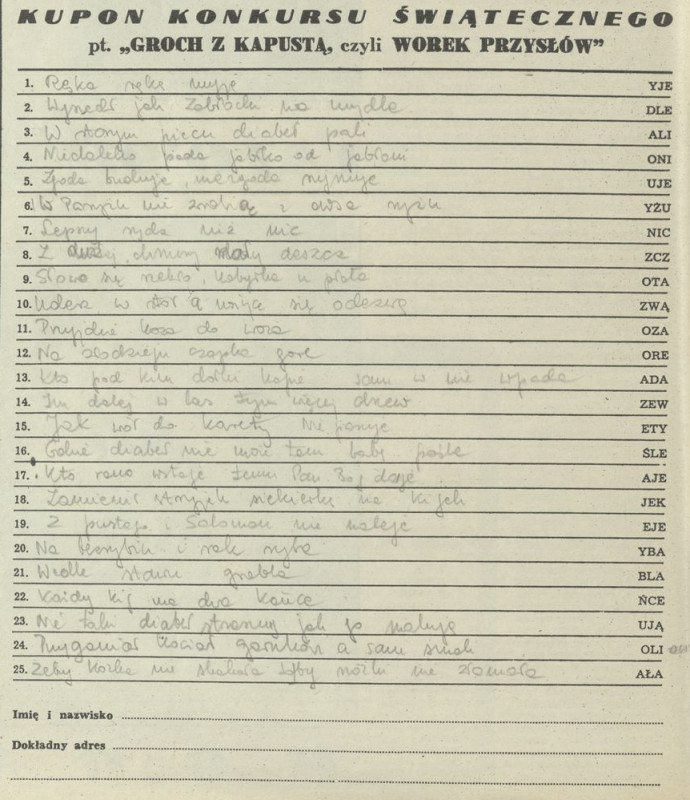 KUPON KONKURSU ŚWIĄTECZNEGO
pt. „GROCH Z KAPUSTĄ, czyli WOREK PRZYSŁÓW”
1. Ręka rękę myje YJE
2. Wyszedł jak Zabłocki na mydle DLE
3. W starym piecu diabeł pali ALI
4. Niedaleko pada jabłko od jabłoni ONI
5. Zgoda buduje, niezgoda rujnuje UJE
6. W Paryżu nie zrobią z owsa ryżu YŻU
7. Lepszy rydz niż nic NIC
8. Z dużej chmury mały deszcz ZCZ
9. Słowo się rzekło, kobyłka u płota OTA
10. Uderz w stół a nożyce się odezwą ZWĄ
11. Przyjdzie koza do woza OZA
12. Na złodzieju czapka gore ORE
13. Kto pod kim dołki kopie sam w nie wpada ADA
14. Im dalej w las tym więcej drzew ZEW
15. Jak wół do karety Nie pasuje ETY
16. Gdzie diabeł nie może tam babę pośle ŚLE
17. Kto rano wstaje temu Pan Bóg daje AJE
18. Zamienił stryjek siekierkę na kijek JEK
19. Z pustego i Salomon nie naleje EJE
20. Na bezrybiu i rak ryba YBA
21. Wedle stawu grobla BLA
22. Każdy kij ma dwa końce ŃCE
23. Nie taki diabeł straszny jak go malują UJĄ
24. Przyganiał kocioł garnkowi a sam smoli OLI
25. Żeby kózka nie skakała toby nóżki nie złamała AŁA
Imię i nazwisko
Dokładny adres